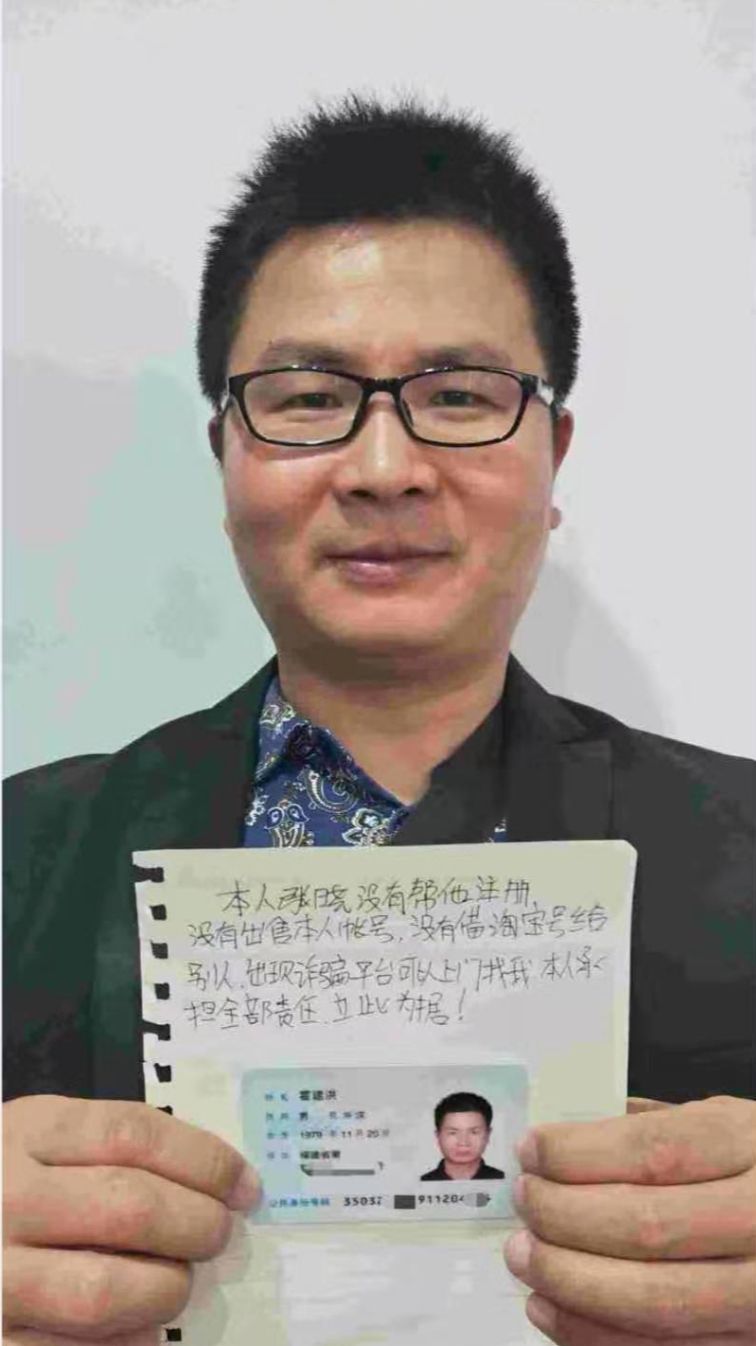 本人张晓没有帮他注册,
没有出售本人帐号,没有借淘宝号给
别人,出现诈骗平台可以上门找我 本人承
担全部责任,立此为据!
姓名 霍建洪
性别 男 民族 汉
出生 1979 年 11 月 20 日
住址 福建省莆
公民身份号码 35032 911204